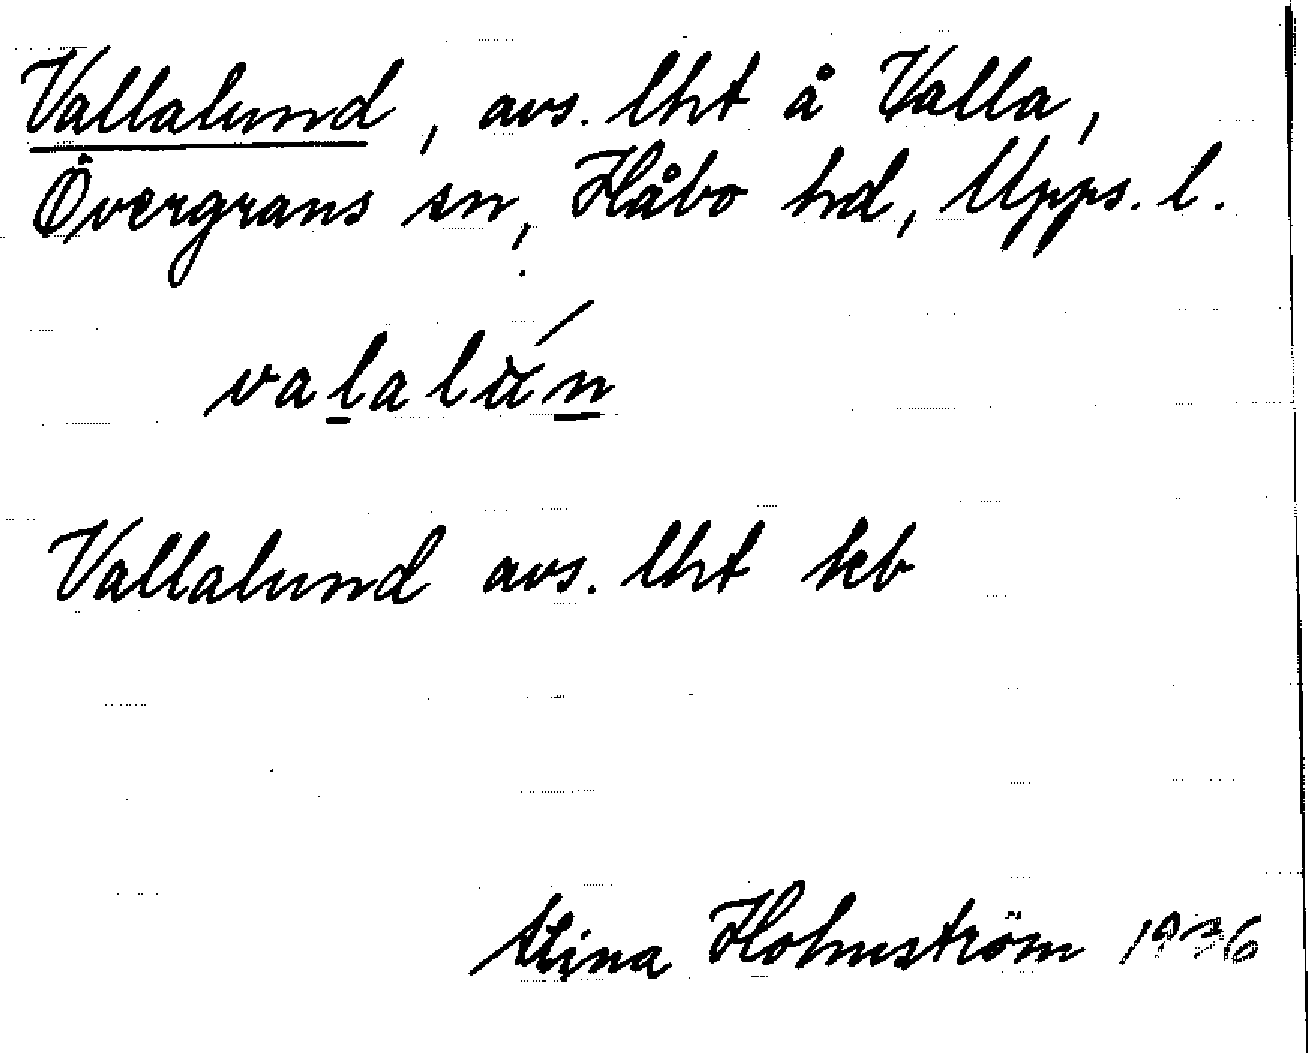 Vallalund, avs. lht å Valla,
Övergrans sn, Håbo hd, Upps. l.
va̲lalún̲
Vallalund avs. lht kb
Stina Holmström 1936